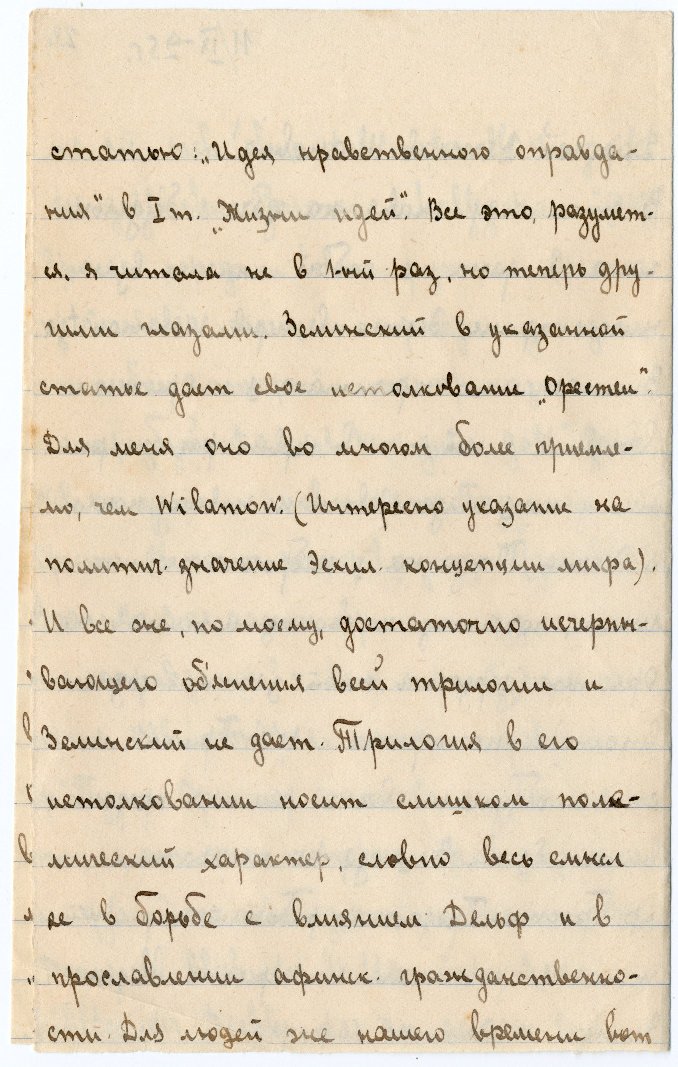 статью: „Идея нравственного оправда-
ния" в I т. „Жизни идей". Все это, разумеет-
ся, я читала не в 1-ый раз, но теперь дру-
гими глазами. Зелинский в указанной
статье дает свое истолкование „Орестеи".
Для меня оно во многом более приемле-
мо, чем Wilamow. (Интересно указание на
политич. значение Эсхил. концепции мира).
И все же, по моему, достаточно исчерпы-
вающего об'яснения всей трилогии и
Зелинский не дает. Трилогия в его
истолковании носит слишком поле-
мический характер, словно весь смысл
ее в борьбе с влиянием Дельф и в
прославлении афинск. гражданственно-
сти. Для людей же нашего времени вот